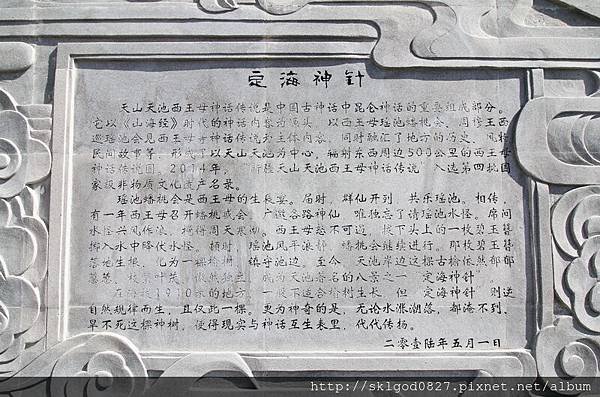 定海神针
天山天池西王母神话传说是中国古神话中昆仑神话的重要组成部分。
它以《山海经》时代的神话内容为源头 以西王母瑶池蟠桃会、周穆王西
巡瑶池会见西王母等神话传说为主体内容，同时融汇了地方的历史、风物
民间故事等，形成了以天山天池为中心，辐射东西周边500公里的西王母
神话传说圈。2014年， 新疆天山天池西王母神话传说 入选第四批国
家级非物质文化遗产名录。
瑶池蟠桃会是西王母的生辰宴。届时，群仙开到 共乐瑶池。相传，
有一年西王母召开蟠桃盛会 广邀各路神仙 唯独忘了请瑶池水怪。席间
水怪兴风作浪，搅得周天寒彻。西王母怒不可遏，拔下头上的一枚碧玉簪
掷入水中降伏水怪。顿时，瑶池风平浪静 蟠桃会继续进行。那枚碧玉簪
落地生根 化为一棵榆树 镇守池边 至今 天池岸边这棵古榆依然郁郁
葱葱，枝繁叶茂 傲然独立 成为天池著名的八景之一 定海神针
在海拔1910米的地方 一般不适合榆树生长 但 定海神针 则逆
自然规律而生，且仅此一棵，更为神奇的是，无论水涨潮落，都淹不到、
旱不死这棵神树，使得现实与神话互生表里，代代传扬。
二零壹陆年五月一日
http://sklgod0827.pixnet.net/album